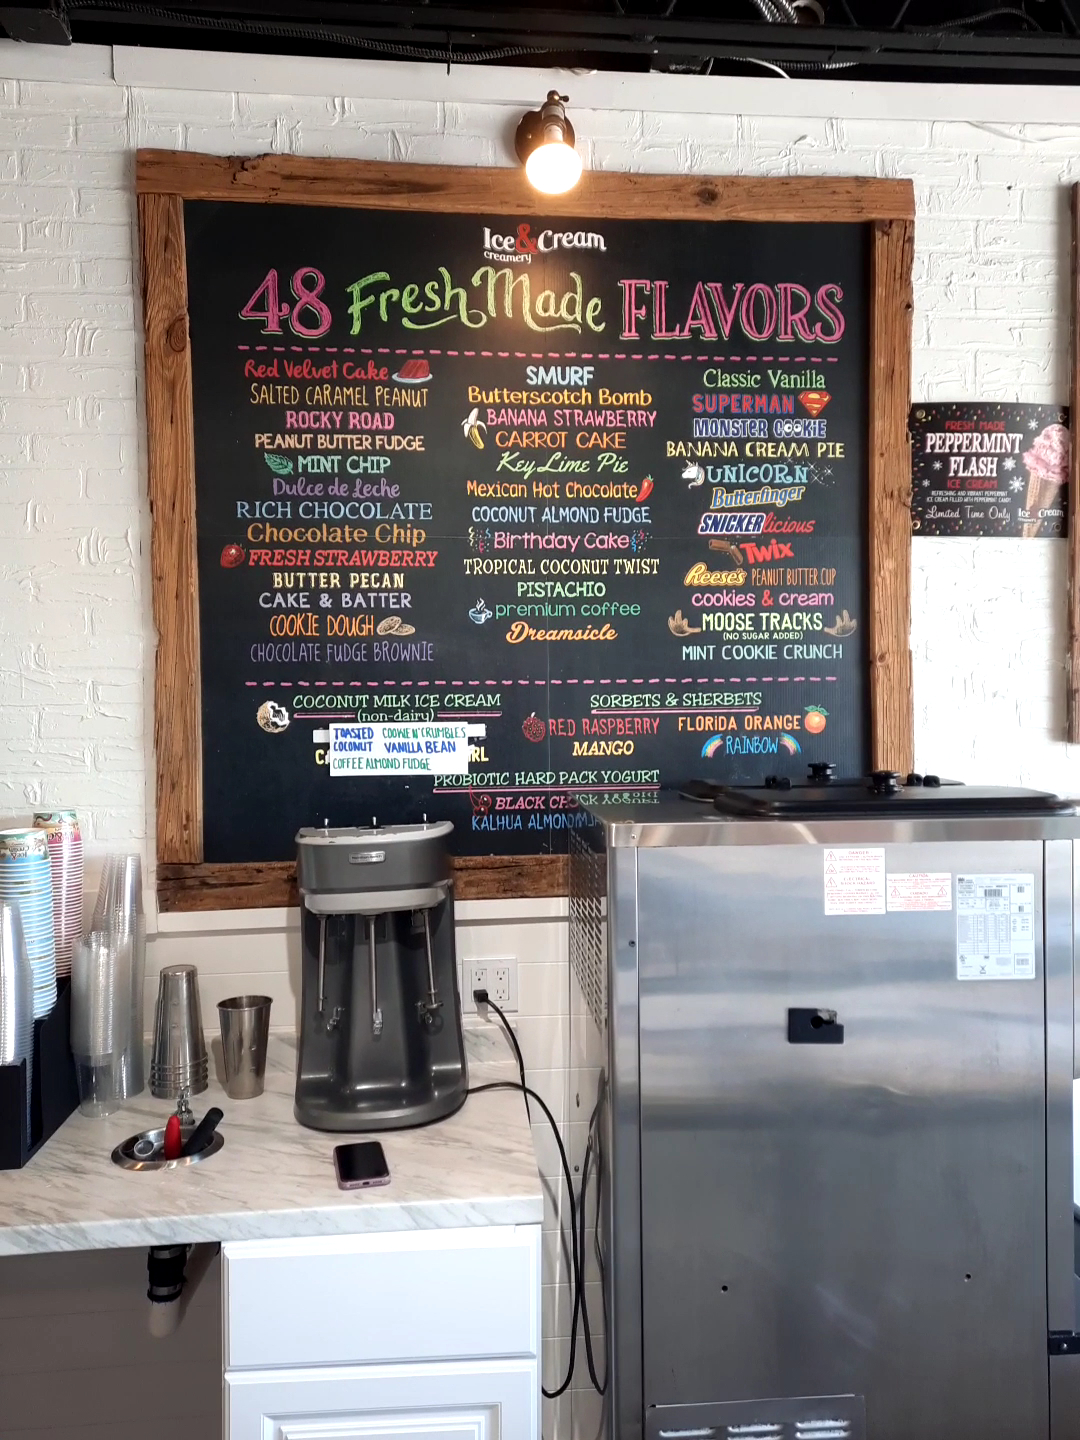 Ice & Cream
creamery
48 Fresh Made FLAVORS
Red Velvet Cake
SALTED CARAMEL PEANUT
ROCKY ROAD
PEANUT BUTTER FUDGE
MINT CHIP
Dulce de Leche
RICH CHOCOLATE
Chocolate Chip
FRESH STRAWBERRY
BUTTER PECAN
CAKE & BATTER
COOKIE DOUGH
CHOCOLATE FUDGE BROWNIE
SMURF
Butterscotch Bomb
BANANA STRAWBERRY
CARROT CAKE
Key Lime Pie
Mexican Hot Chocolate
COCONUT ALMOND FUDGE
Birthday Cake
TROPICAL COCONUT TWIST
PISTACHIO
premium coffee
Dreamsicle
Classic Vanilla
SUPERMAN
MONSTER COOKIE
BANANA CREAM PIE
UNICORN
Butterfinger
SNICKERlicious
Twix
Reese's PEANUT BUTTER CUP
cookies & cream
MOOSE TRACKS
(NO SUGAR ADDED)
MINT COOKIE CRUNCH
COCONUT MILK ICE CREAM
(non-dairy)
TOASTED COOKIE N' CRUMBLES
COCONUT VANILLA BEAN
COFFEE ALMOND FUDGE
SORBETS & SHERBETS
RED RASPBERRY
FLORIDA ORANGE
MANGO
RAINBOW
PROBIOTIC HARD PACK YOGURT
BLACK
KALHUA ALMOND
FRESH MADE
PEPPERMINT
FLASH
ICE CREAM
REFRESHING AND VIBRANT PEPPERMINT
ICE CREAM FILLED WITH PEPPERMINT CANDY
Limited Time Only
Ice & Cream